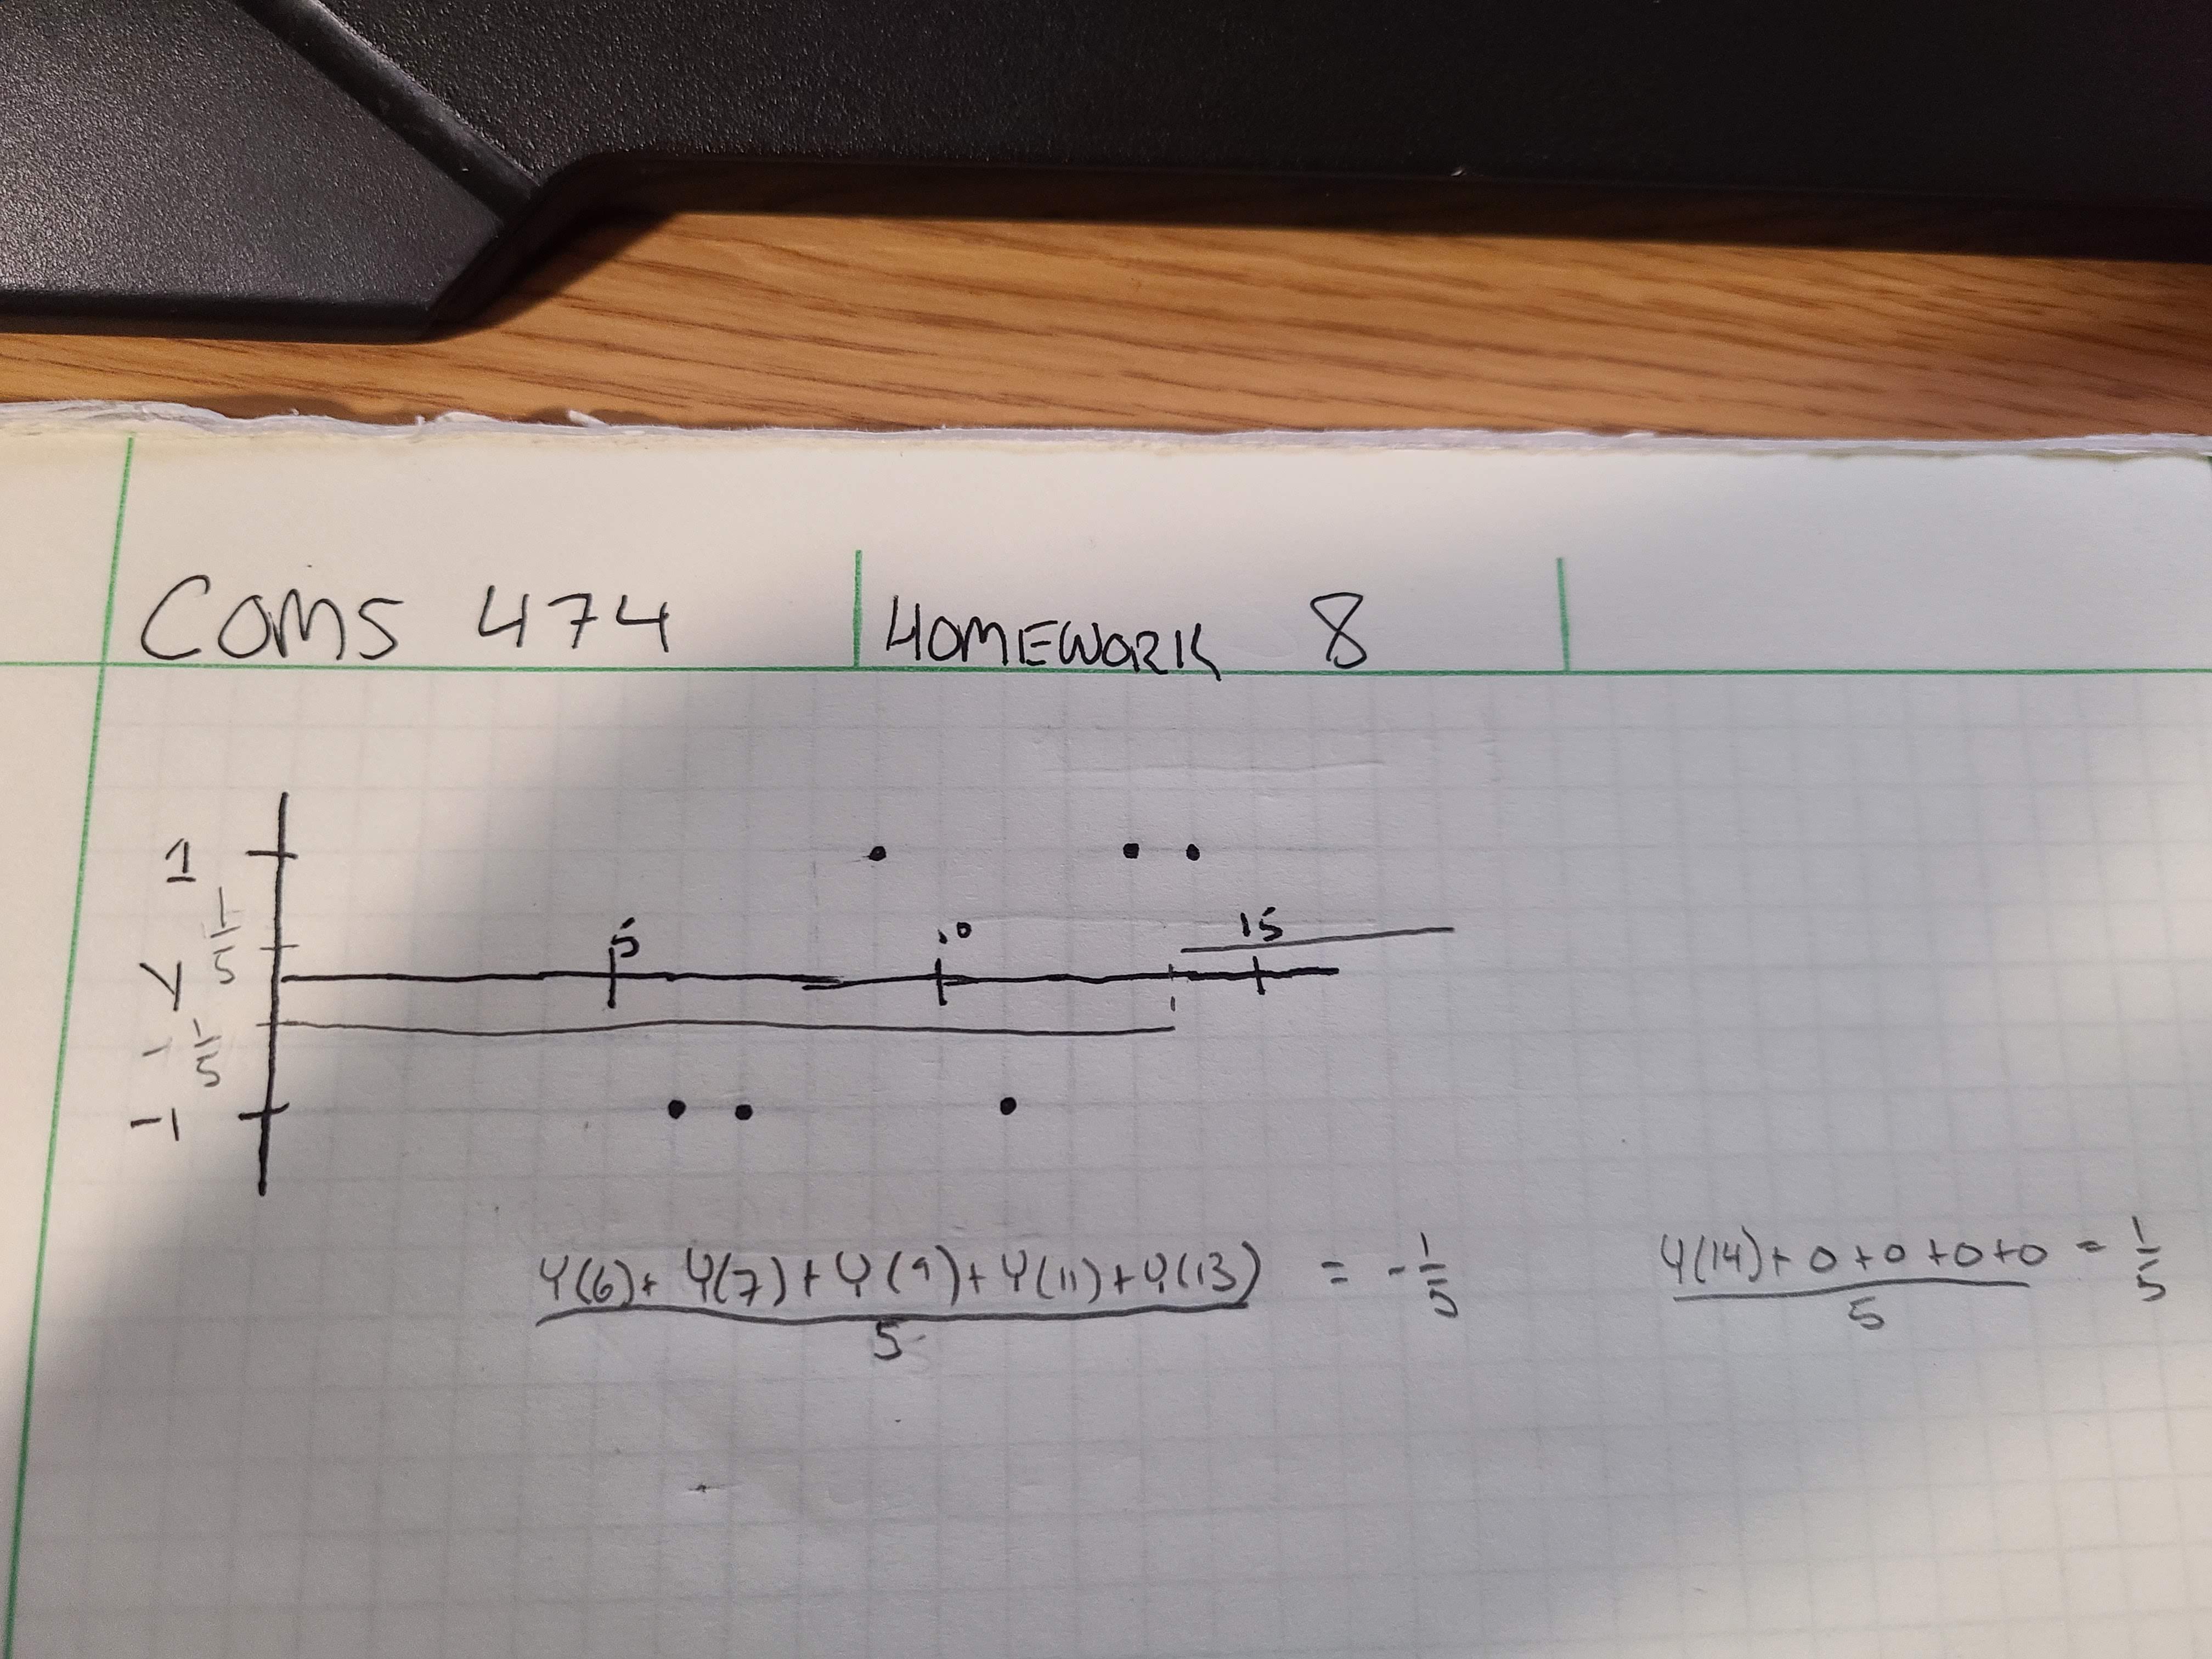 COMS 474 HOMEWORK 8
1
1/5
5 10 15
Y
-1/5
-1
Y(6)+ Y(7)+Y(9)+Y(11)+Y(13) = -1/5
5
Y(14)+0+0+0+0 = 1/5
5